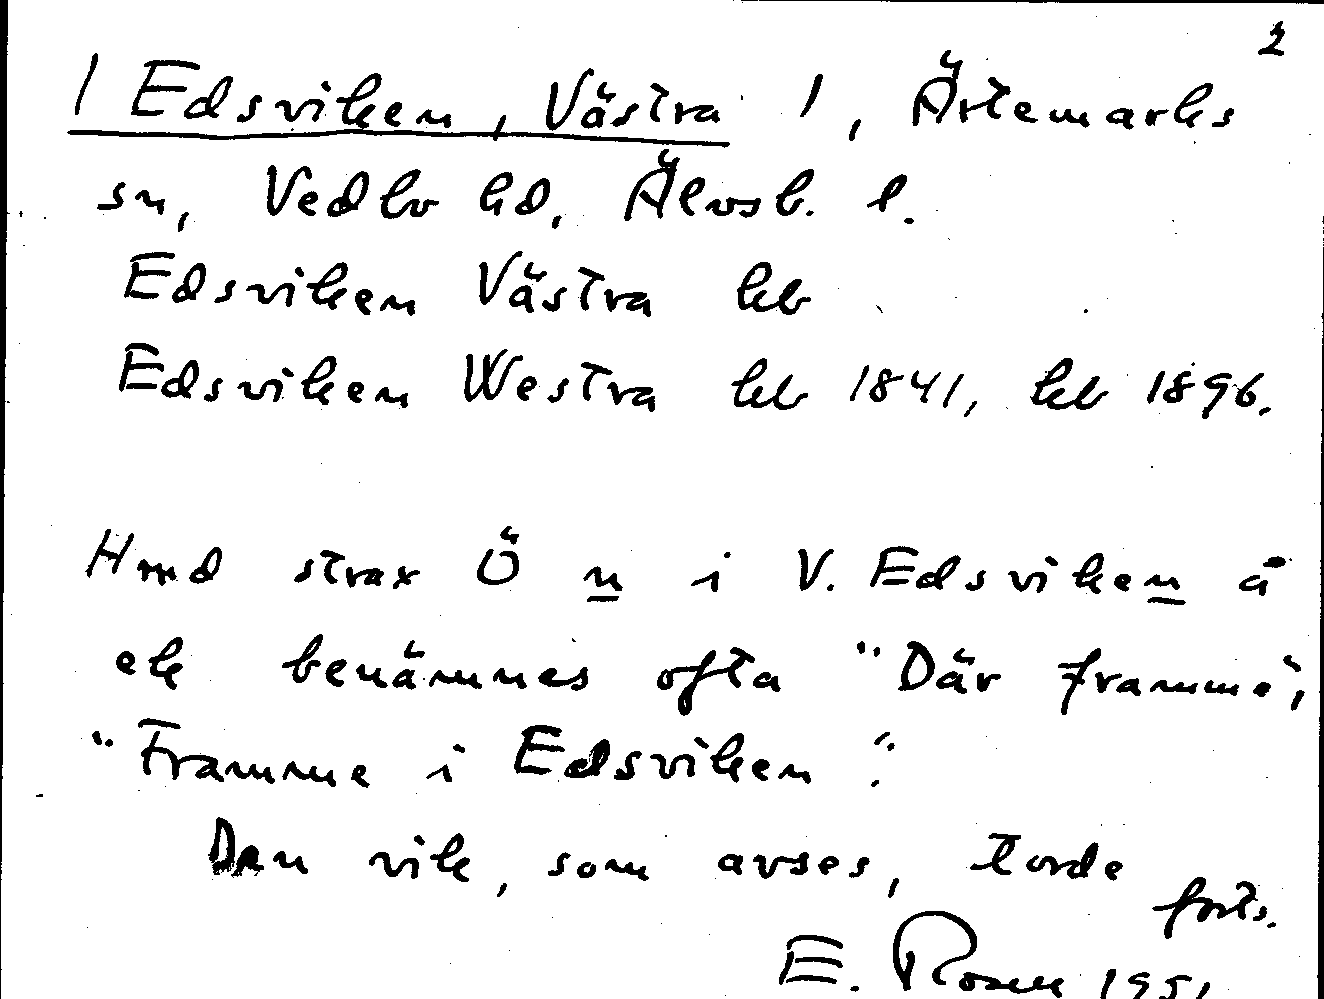 2
/ Edsviken, Västra /, Ärtemarks
sn, Vedbo hd, Älvsb. l.
Edsviken Västra kb
Edsviken Westra kb 1841, kb 1896.
Hmd strax Ö n i V. Edsviken å
ek benämnes ofta "Där framme",
"Framme i Edsviken".
Den vik, som avses, torde
forts.
E. Rosen 1951